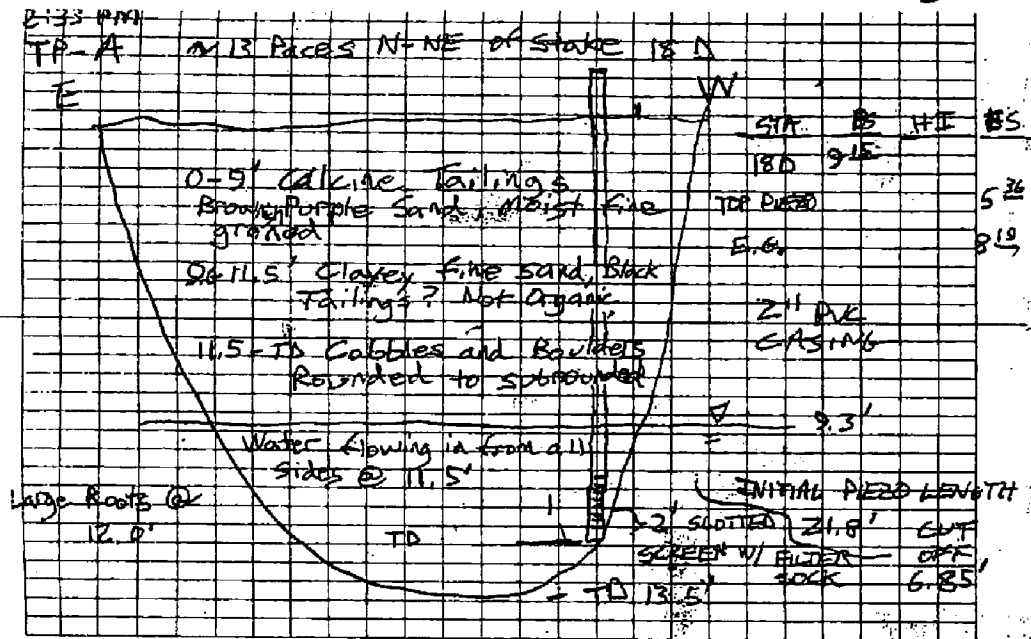 2:33 PM
TP-A ~13 Paces N-NE of Stake 18 D
E W
STA BS HI FS
18D 9 15
0-9' Calcine Tailings
Brownish Purple Sand, Moist fine
grained
TOP PIEZO 5 36
E.G. 8 19
11.5' Clayey fine sand, Black
Tailings? Not Organic
2" PVC
CASING
11.5-TD Cobbles and Boulders
Rounded to subrounded
9.3'
Water flowing in from all
sides @ 11.5'
Large Roots @
12.0'
TD
2' SLOTTED
SCREEN W/ FILTER
SOCK
INITIAL PIEZO LENGTH
21.8' CUT
OFF
6.85'
TD 13.5'